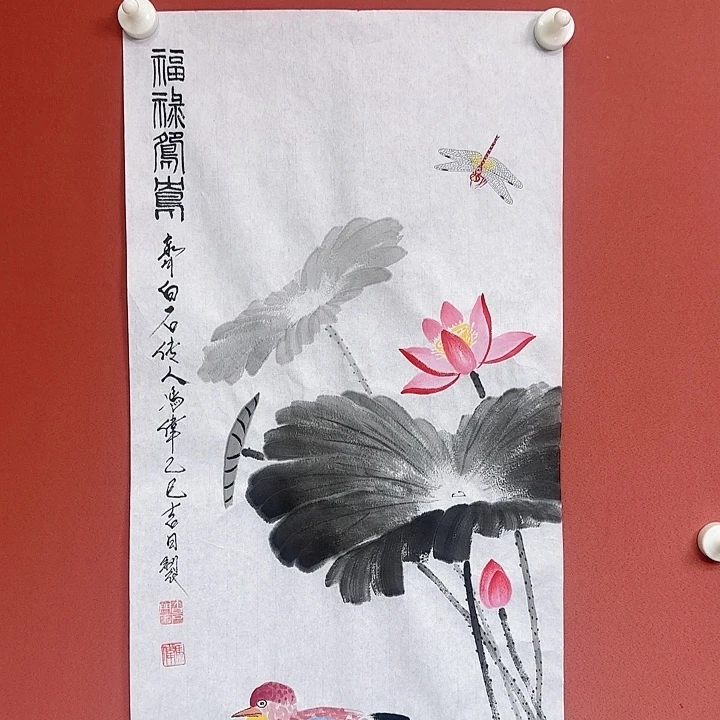 福祿鴛鴦
齊白石傳人馮偉乙巳吉日製